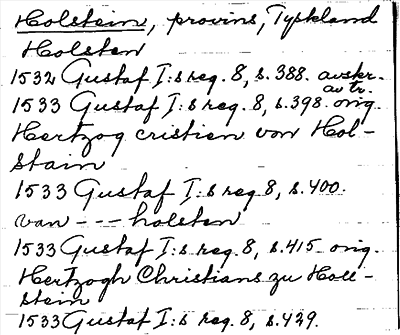 Holstein, provins, Tyskland
Holsten
1532 Gustaf I:s reg. 8, s. 388. avskr.
av tr.
1533 Gustaf I:s reg. 8, s. 398. orig.
Hertzog cristien von Hol-
stain
1533 Gustaf I:s reg 8, s. 400.
van --- holsten
1533 Gustaf I:s reg. 8, s. 415 orig.
Hertzogh Christians zu Holl-
stein
1533 Gustaf I:s reg. 8, s. 429.